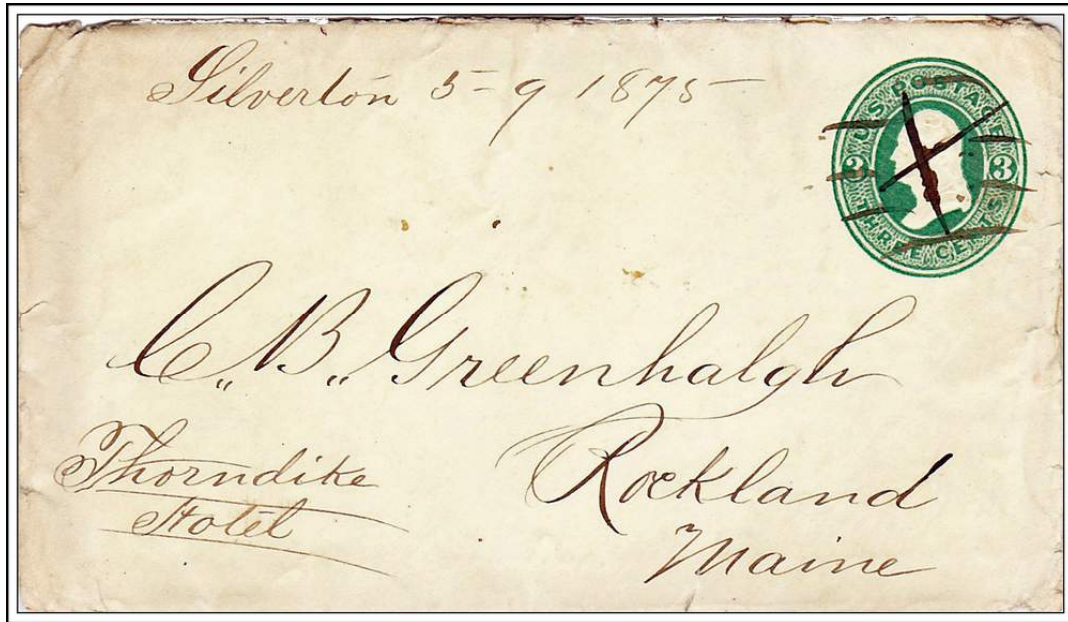 Silverton 5-9 1875
U.S. POSTAGE
3 3
THREE CENTS
C. B. Greenhalgh
Thorndike
Hotel
Rockland
Maine